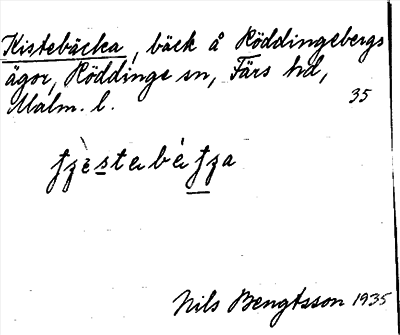 Kistebäcka, bäck å Röddingebergs
ägor, Röddinge sn, Färs hd,
Malm. l. 35
Nils Bengtsson 1935